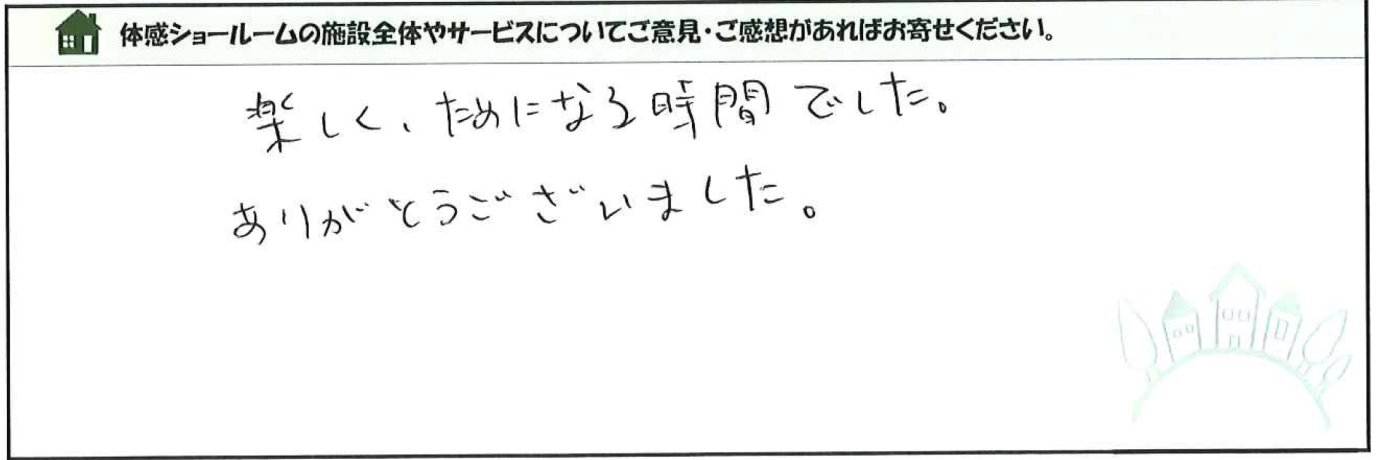 体感ショールームの施設全体やサービスについてご意見・ご感想があればお寄せください。
楽しく、ためになる時間でした。
ありがとうございました。